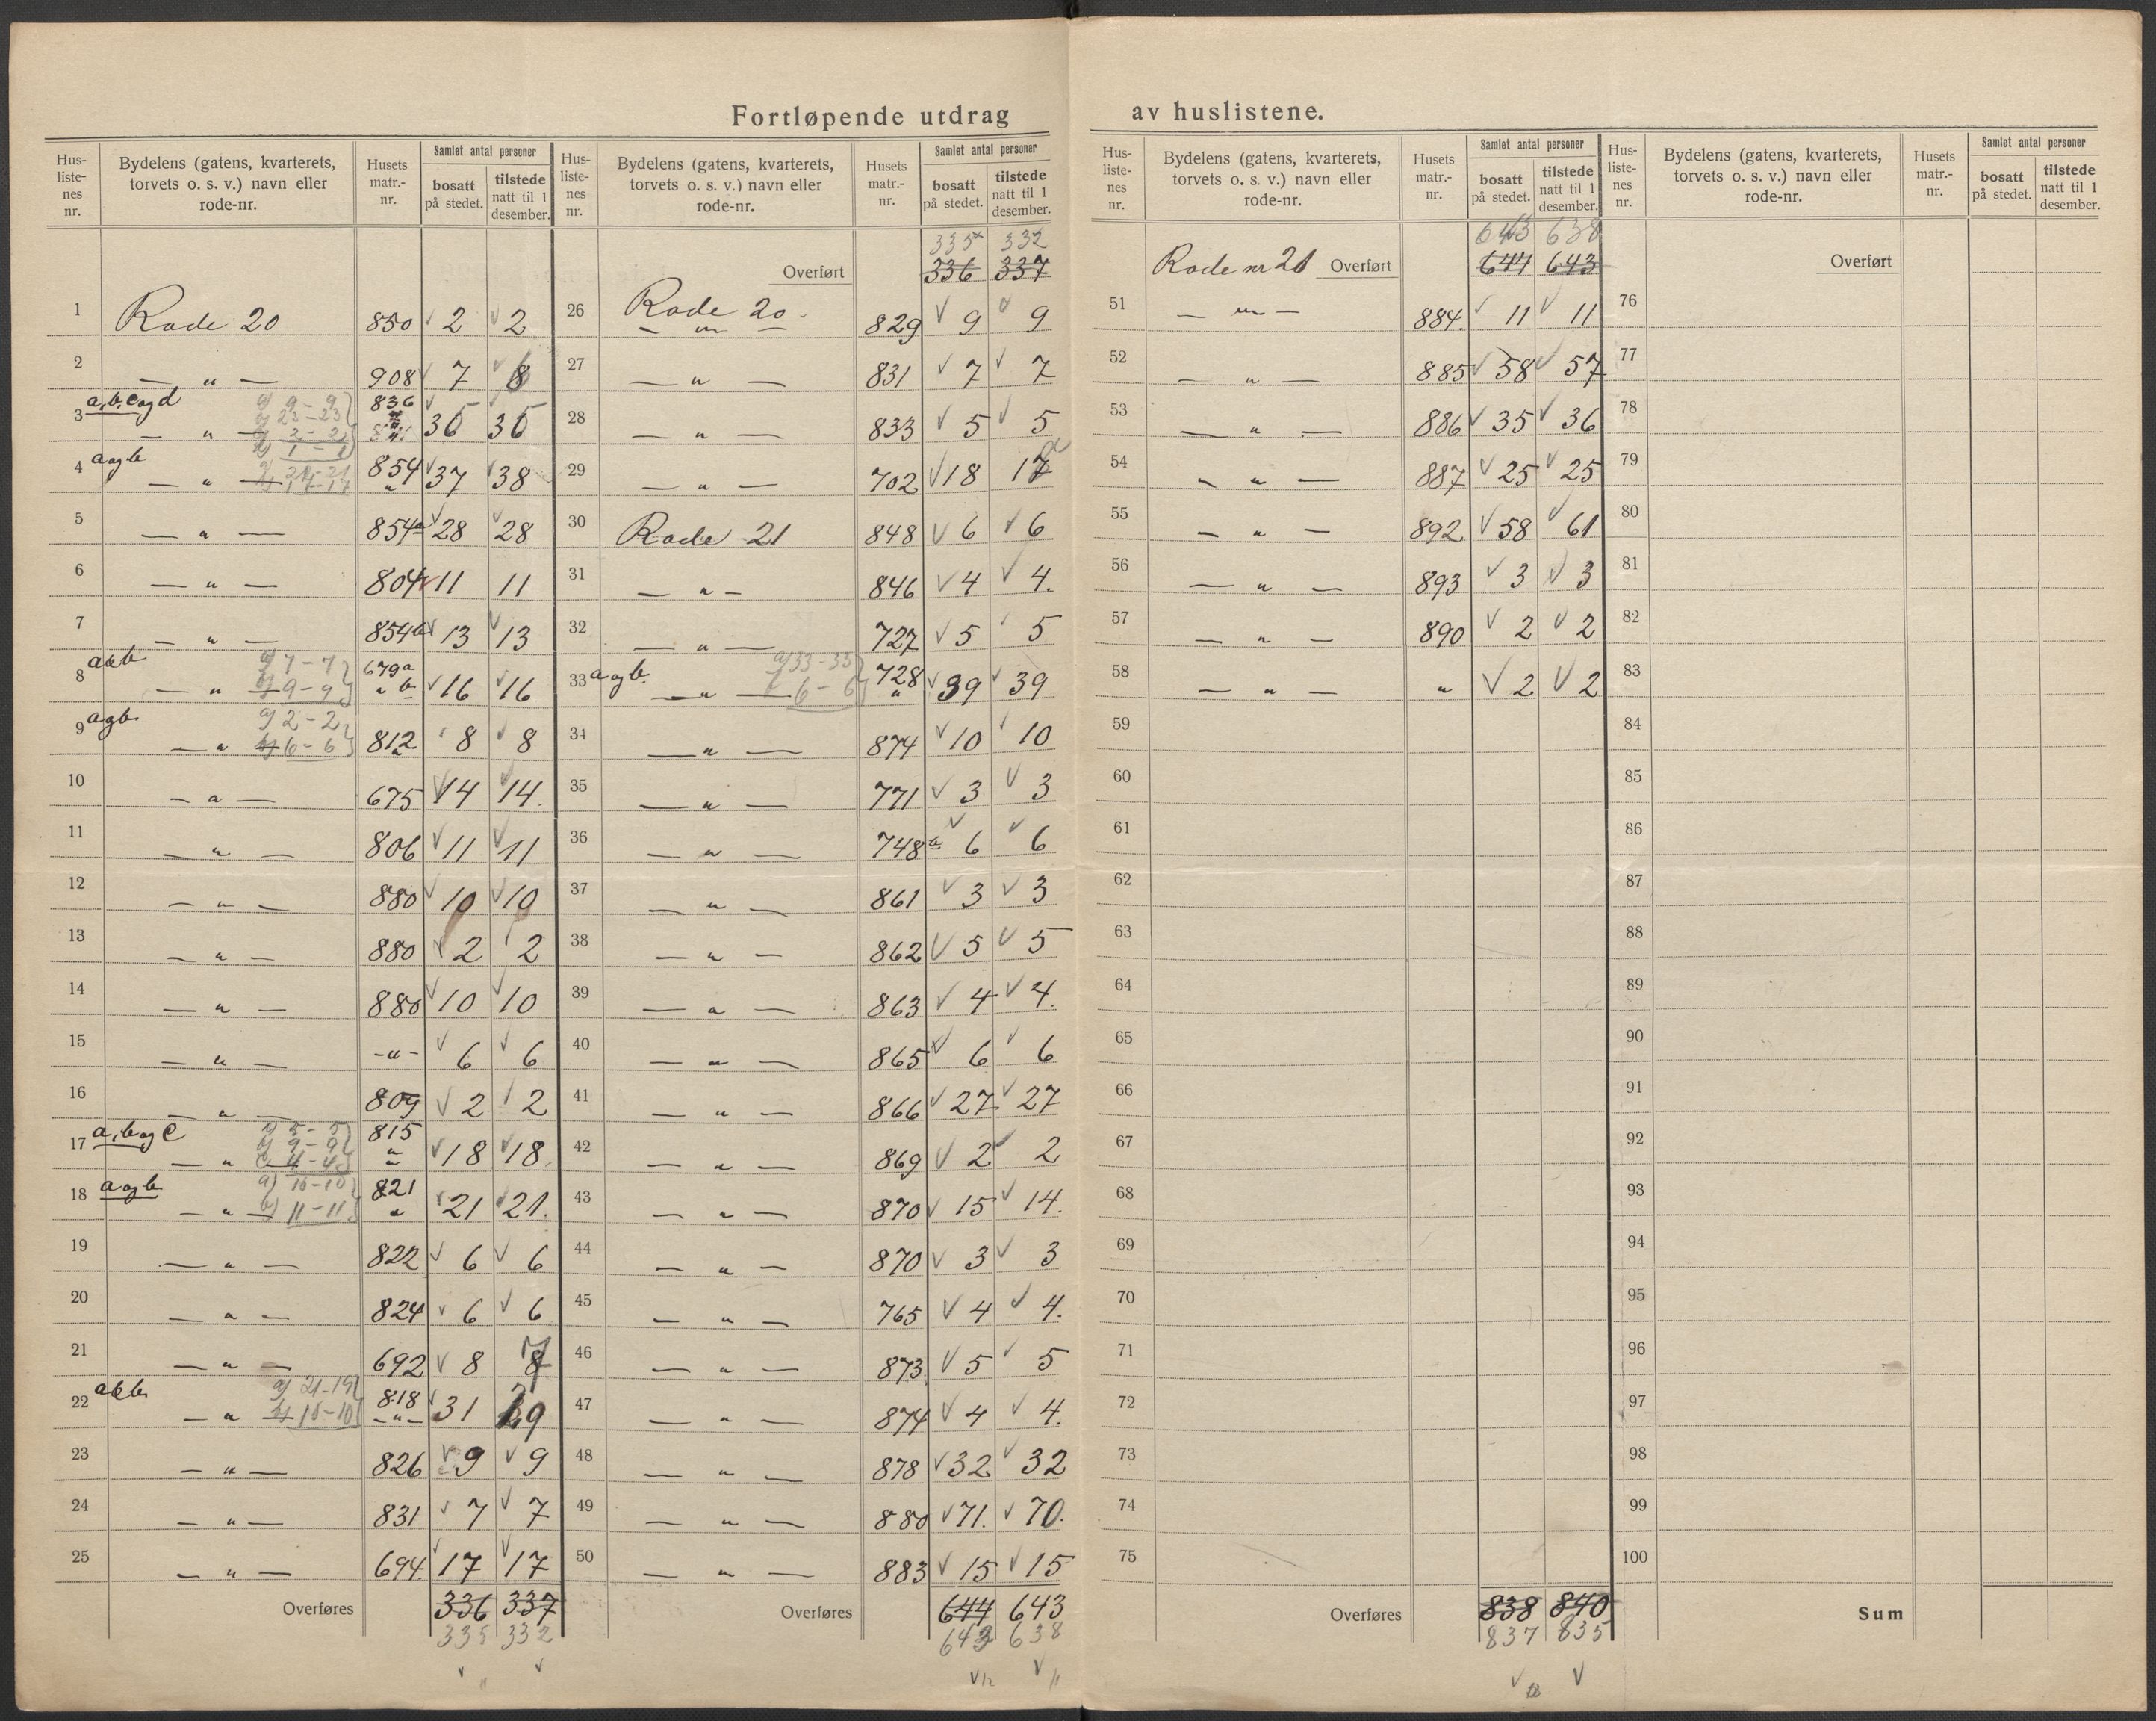 Fortløpende utdrag av huslistene.
Hus-liste-nes nr. | Bydelens (gatens, kvarterets, torvets o. s. v.) navn eller rode-nr. | Husets matr.-nr. | Samlet antal personer: bosatt på stedet. | tilstede natt til 1 desember.
1 Rode 20 850 2 2
2 — " — 908 7 8
3 a, b, c og d — " — a) 9-9 b) 23-23 2-2 1-1 836 " " " 35 35
4 a og b — " — 21-21 17-17 854 " 37 38
5 — " — 854a 28 28
6 — " — 804 11 11
7 — " — 854b 13 13
8 a & b — " — a) 7-7 b) 9-9 679a " b 16 16
9 a og b — " — a) 2-2 b) 6-6 812 " 8 8
10 — " — 675 14 14.
11 — " — 806 11 11
12 — " — 880 10 10
13 — " — 880 2 2
14 — " — 880 10 10
15 — " — -"- 6 6
16 — " — 809 2 2
17 a, b og c — " — a) 5-5 b) 9-9 c) 4-4 815 " " 18 18
18 a og b — " — a) 10-10 b) 11-11 821 " 21 21.
19 — " — 822 6 6
20 — " — 824 6 6
21 — " — 692 8 7
22 a & b — " — a) 21-19 b) 10-10 818 -"- 31 29
23 — " — 826 9 9
24 — " — 831 7 7
25 — " — 694. 17 17
Overføres 336 337
335 332
Hus-liste-nes nr. | Bydelens (gatens, kvarterets, torvets o. s. v.) navn eller rode-nr. | Husets matr.-nr. | Samlet antal personer: bosatt på stedet. | tilstede natt til 1 desember.
335 332
Overført 336 337
26 Rode 20. — " — 829 9 9
27 — " — 831 7 7
28 — " — 833 5 5
29 — " — 702 18 17
30 Rode 21 848 6 6
31 — " — 846 4 4.
32 — " — 727 5 5
33 a og b. — " — a) 33-33 6-6 728 " 39 39
34 — " — 874 10 10
35 — " — 771 3 3
36 — " — 748b 6 6
37 — " — 861 3 3
38 — " — 862 5 5
39 — " — 863 4 4.
40 — " — 865 6 6
41 — " — 866 27 27
42 — " — 869 2 2
43 — " — 870 15 14.
44 — " — 870 3 3
45 — " — 765 4 4.
46 — " — 873 5 5
47 — " — 874 4 4.
48 — " — 878 32 32
49 — " — 880 71. 70.
50 — " — 883 15 15
Overføres 644 643
643 638
Hus-liste-nes nr. | Bydelens (gatens, kvarterets, torvets o. s. v.) navn eller rode-nr. | Husets matr.-nr. | Samlet antal personer: bosatt på stedet. | tilstede natt til 1 desember.
643 638
Rode nr 21 Overført 644 643
51 — " — 884. 11 11
52 — " — 885 58 57
53 — " — 886 35 36
54 — " — 887 25 25
55 — " — 892 58 61
56 — " — 893 3 3
57 — " — 890 2 2
58 — " — " 2 2
59
60
61
62
63
64
65
66
67
68
69
70
71
72
73
74
75
Overføres 838 840
837 835
Hus-liste-nes nr. | Bydelens (gatens, kvarterets, torvets o. s. v.) navn eller rode-nr. | Husets matr.-nr. | Samlet antal personer: bosatt på stedet. | tilstede natt til 1 desember.
Overført
76
77
78
79
80
81
82
83
84
85
86
87
88
89
90
91
92
93
94
95
96
97
98
99
100
Sum